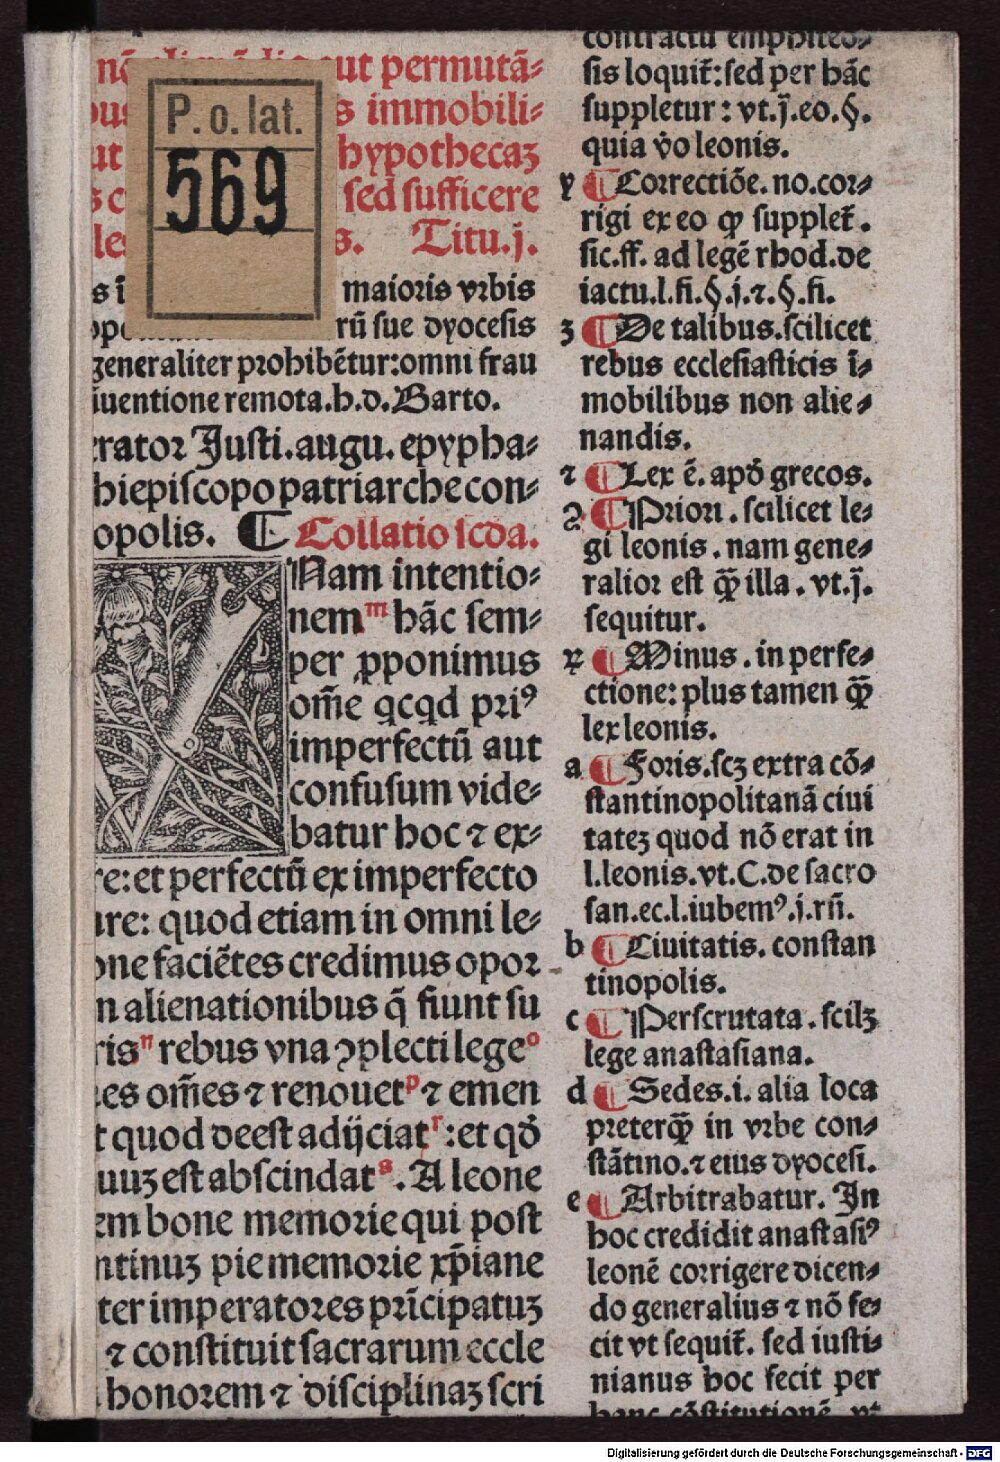 P. o. lat.
569
aut permutã⸗
s immobili⸗
hypothecaʒ
sed sufficere
s. Titu.j.
maioris vrbis
rũ sue dyocesis
generaliter prohibẽtur:omni frau
iuentione remota.h.d.Barto.
erator Justi.augu.epypha⸗
hiepiscopo patriarche con⸗
opolis. ¶ Collatio scda.
Nam intentio⸗
nem m hãc sem⸗
per ꝓponimus
om̃e qcqd priꝰ
imperfectũ aut
confusum vide⸗
batur hoc ⁊ ex⸗
re: et perfectũ ex imperfecto
are: quod etiam in omni le⸗
one faciẽtes credimus opor
n alienationibus q̃ fiunt su
ris n rebus vna ꝯplecti lege o
es om̃es ⁊ renouet p ⁊ emen
t quod deest adijciat r :et qd̃
uuʒ est abscindat s . A leone
em bone memorie qui post
ntinuʒ pie memorie xp̃iane
ter imperatores prĩcipatuʒ
⁊ constituit sacrarum eccle
honorem ⁊ disciplinaʒ scri
contractu emphiteo⸗
sis loquit̃: sed per hãc
suppletur : vt.j̃.eo.§.
quia v̊o leonis.
y ¶ Correctiõe. no.cor⸗
rigi ex eo ꝙ supplet̃.
sic.ff. ad legẽ rhod.de
iactu.l.fi.§.j.⁊.§.fi.
ʒ ¶ De talibus.scilicet
rebus ecclesiasticis ĩ⸗
mobilibus non alie⸗
nandis.
⁊ ¶ Lex ẽ. apd̃ grecos.
ꝯ ¶ Priori . scilicet le⸗
gi leonis . nam gene⸗
ralior est q̃ȝ illa . vt.j̃.
sequitur.
ꝝ ¶ Minus . in perfe⸗
ctione: plus tamen q̃ȝ
lex leonis.
a ¶ Foris.scʒ extra cõ⸗
stantinopolitanã ciui
tateʒ quod nõ erat in
l.leonis.vt.C.de sacro
san.ec.l.iubemꝰ.j.rñ.
b ¶ Ciuitatis. constan
tinopolis.
c ¶ Perscrutata . scilʒ
lege anastasiana.
d ¶ Sedes.i. alia loca
preterq̃ȝ in vrbe con⸗
stãtino.⁊ eius dyocesi.
e ¶ Arbitrabatur. In
hoc credidit anastasiꝰ
leonẽ corrigere dicen⸗
do generalius ⁊ nõ fe⸗
cit vt sequit̃. sed iusti⸗
nianus hoc fecit per
hanc cõstitutionẽ. vt
Digitalisierung gefördert durch die Deutsche Forschungsgemeinschaft - DFG